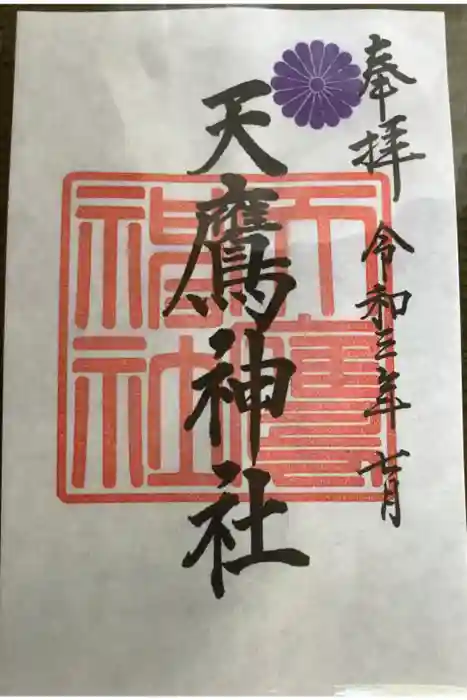 奉拝 令和三年 七月
天鷹神社
天鷹
神社